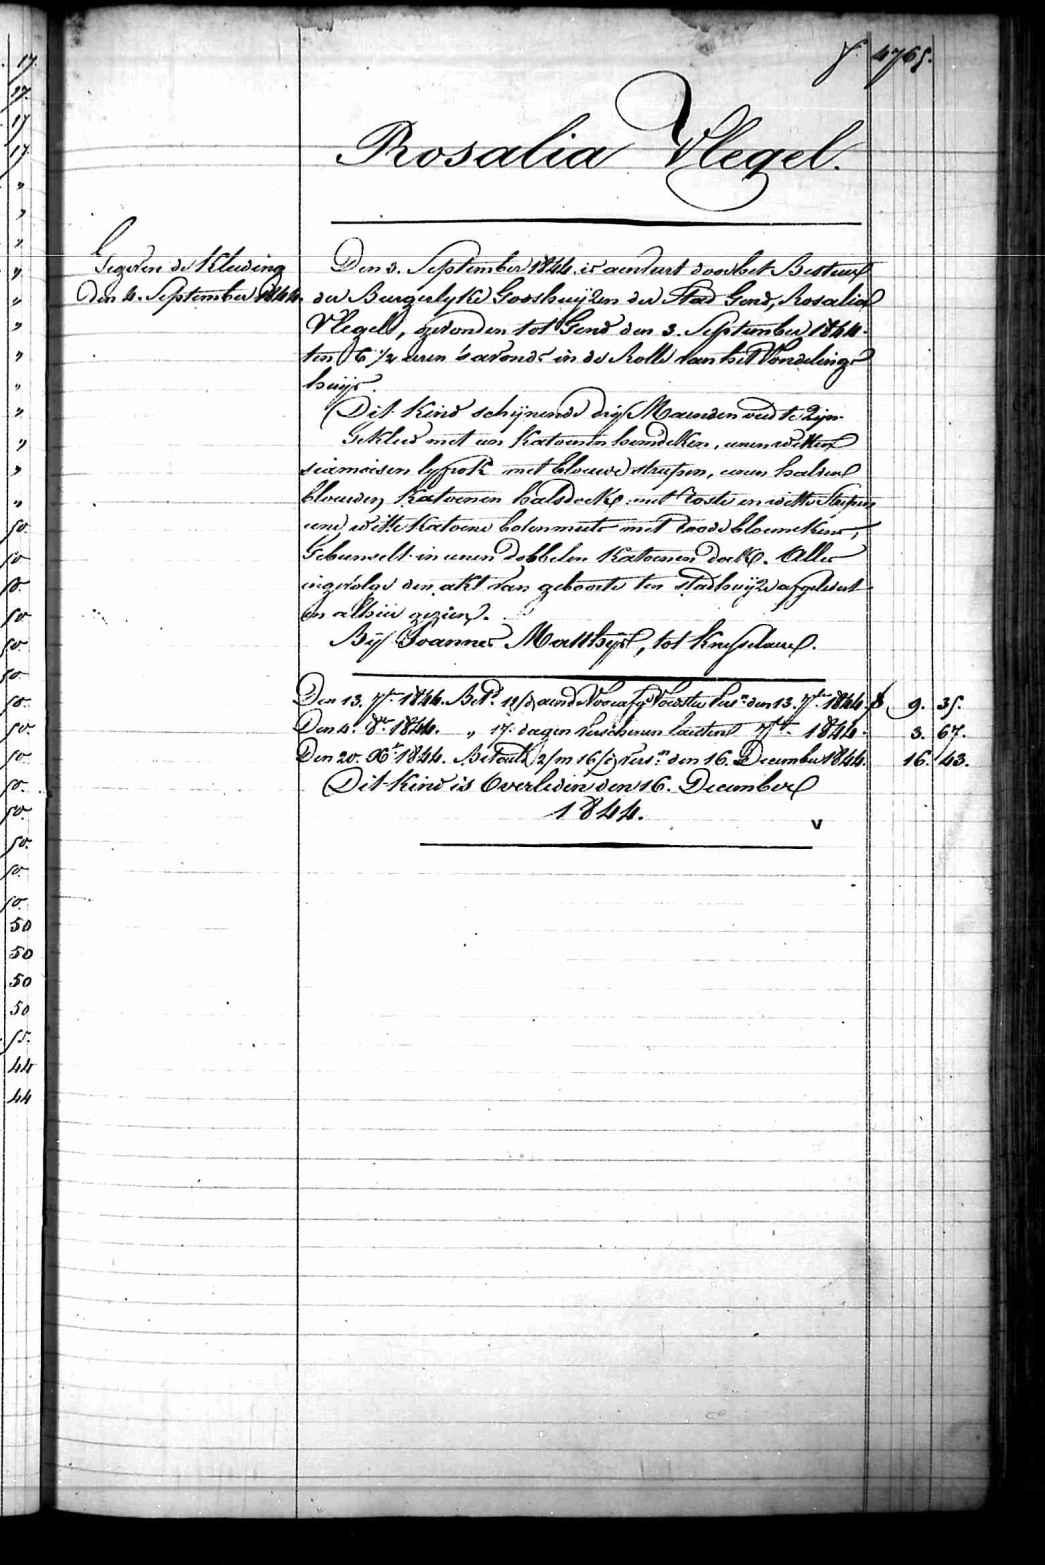 f. 4765.
Rosalia Vlegel.
Gegeven de Kleeding
den 4. September 1844.
Den 3. September 1844 is aenveert door het Bestuur
der Burgerlyke Godshuijzen der Stad Gend, Rosalia
Vlegel, gevonden tot Gend den 3. September 1844.
ten 6 1/2 uren 's avonds in de Rolle van het Vondeling-
huijs.
Dit Kind schijnende drij Maenden oud te zijn
Gekleed met een Katoenen hemdeken, eenen witten
siamoisen lyfrok met blauwe streepen, eenen halven
blauwen Katoenen halsdoek met roode en witte Streepen
eene witte Katoene bolonmuts met roode bloemekens,
Gebunselt in eenen dobbelen Katoenen doek. Alles
ingevolge den akt van geboorte ten stadhuijze afgeleverd
en alhier gezien.
Bij Joannes Matthijs, tot Knesselaere.
Den 13. 7br 1844. Bet.d den 13. 7br 1844 9. 35.
Den 4. 8br 1844. " 17. dagen verschenen laetsten 7br 1844. 3. 67.
Den 20. Xbr 1844. Betaelt 2/m 16/d vers.n den 16. December 1844. 16. 43.
Dit Kind is Overleden den 16. December
1844.
v
17.
17.
17
17
"
"
"
"
"
"
"
"
"
"
"
"
50.
50
50
50
50
50
50.
50.
50
50.
50
50.
50.
50.
50
50
50
50
55.
44
44